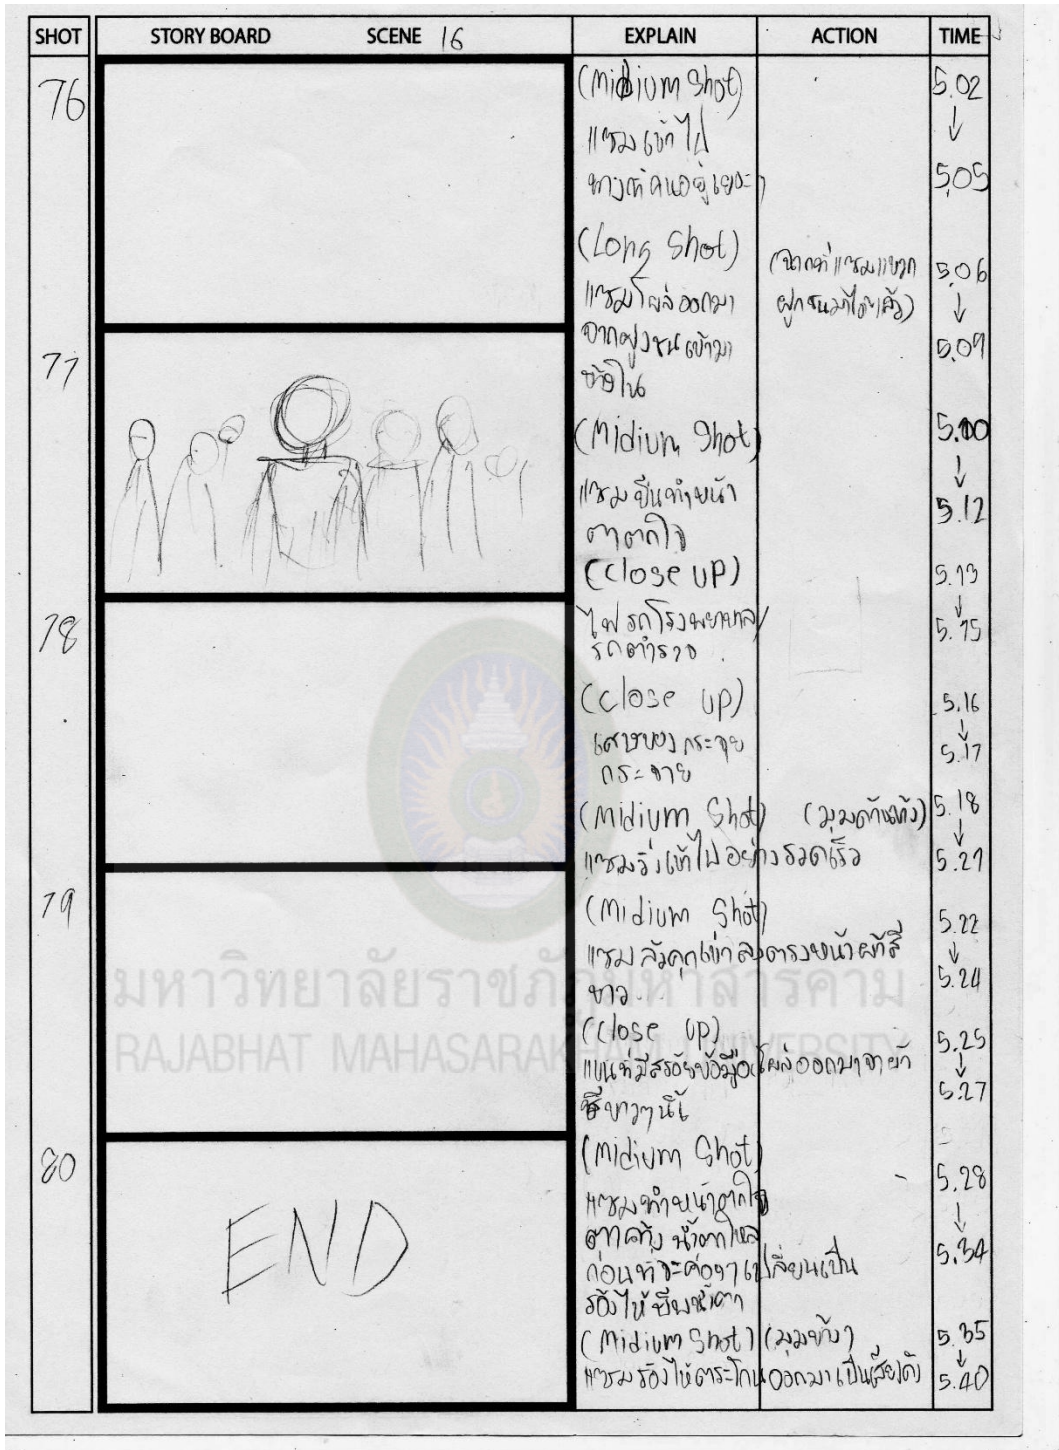 SHOT STORY BOARD SCENE 16 EXPLAIN ACTION TIME
76
(Midium Shot)
แซมเข้าไป
ทางที่คนอยู่เยอะๆ
5.02
↓
5.05
(Long Shot)
แซมโผล่ออกมา
จากฝูงชนเข้ามา
ข้างใน
(ฉากที่แซมแหวก
ฝูกชนมาได้แล้ว)
5.06
↓
5.09
77
(Midium Shot)
แซมยืนทำหน้า
ตาตกใจ
5.10
↓
5.12
(Close UP)
ไฟรถโรงพยาบาล/
รถตำรวจ
5.13
↓
5.15
78
(Close UP)
เศษของกระจุย
กระจาย
5.16
↓
5.17
(Midium Shot) (มุมด้านหลัง)
แซมวิ่งเข้าไปอย่างรวดเร็ว
5.18
↓
5.21
79
(Midium Shot)
แซมล้มคุกเข่าลงตรงหน้าผ้าสี
ขาว
5.22
↓
5.24
(Close UP)
แขนที่มีสร้อยข้อมือโผล่ออกมาจากผ้า
สีขาวๆนี้
5.25
↓
5.27
80
END
(Midium Shot)
แซมทำหน้าตกใจ
ตาค้าง น้ำตาไหล
ก่อนที่จะค่อยๆเปลี่ยนเป็น
ร้องไห้
5.28
↓
5.34
(Midium Shot) (มุมข้าง)
แซมร้องไห้ตระโกนออกมาเป็นเสียงดัง
5.35
↓
5.40
มหาวิทยาลัยราชภัฏมหาสารคาม
RAJABHAT MAHASARAKHAM UNIVERSITY